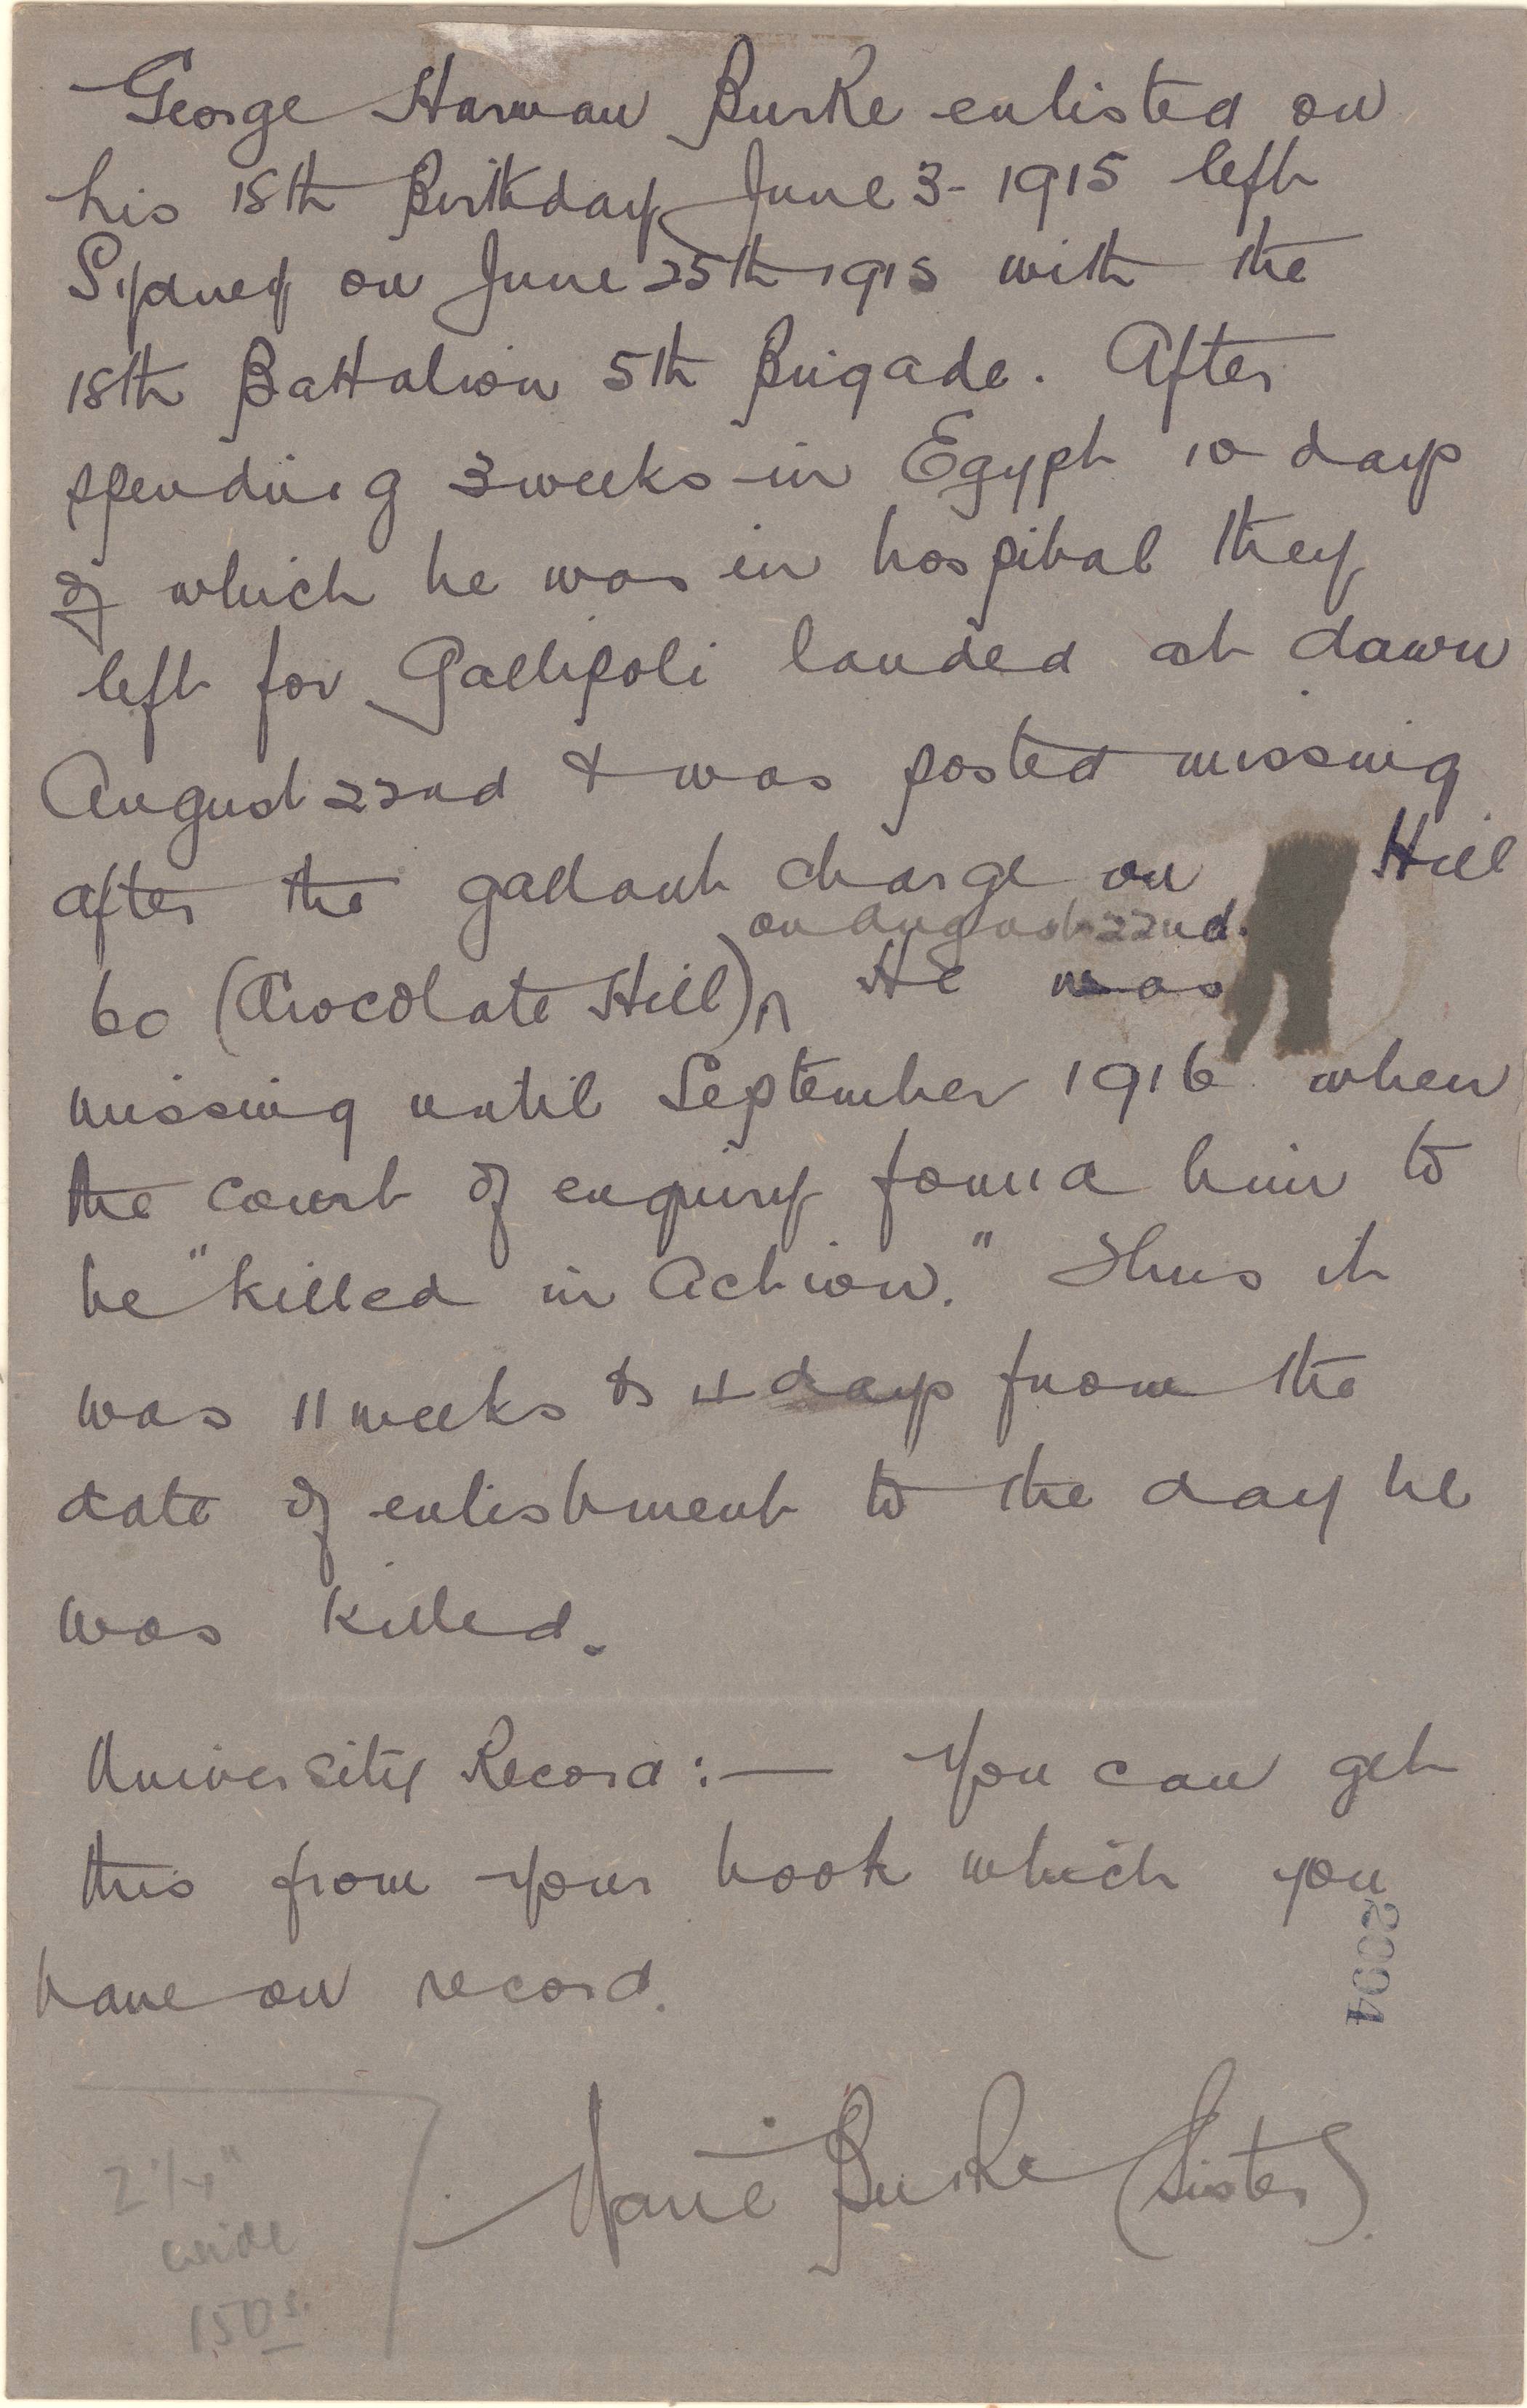 George Harman Burke enlisted on
his 18th Birthday June 3 - 1915 left
Sydney on June 25th 1915 with the
18th Battalion 5th Brigade. After
spending 3 weeks in Egypt 10 days
of which he was in hospital they
left for Gallipoli landed at dawn
August 22nd & was posted missing
after the gallant charge on Hill
on August 22nd.
60 (Chocolate Hill) ^ He was
missing until September 1916 when
the court of enquiry found him to
be "killed in Action." Thus it
was 11 weeks & 4 days from the
date of enlistment to the day he
was killed.
University Record :— You can get
this from your book which you
have on record.
2094
Burke (Sister).
2 1/4"
wide
150s.